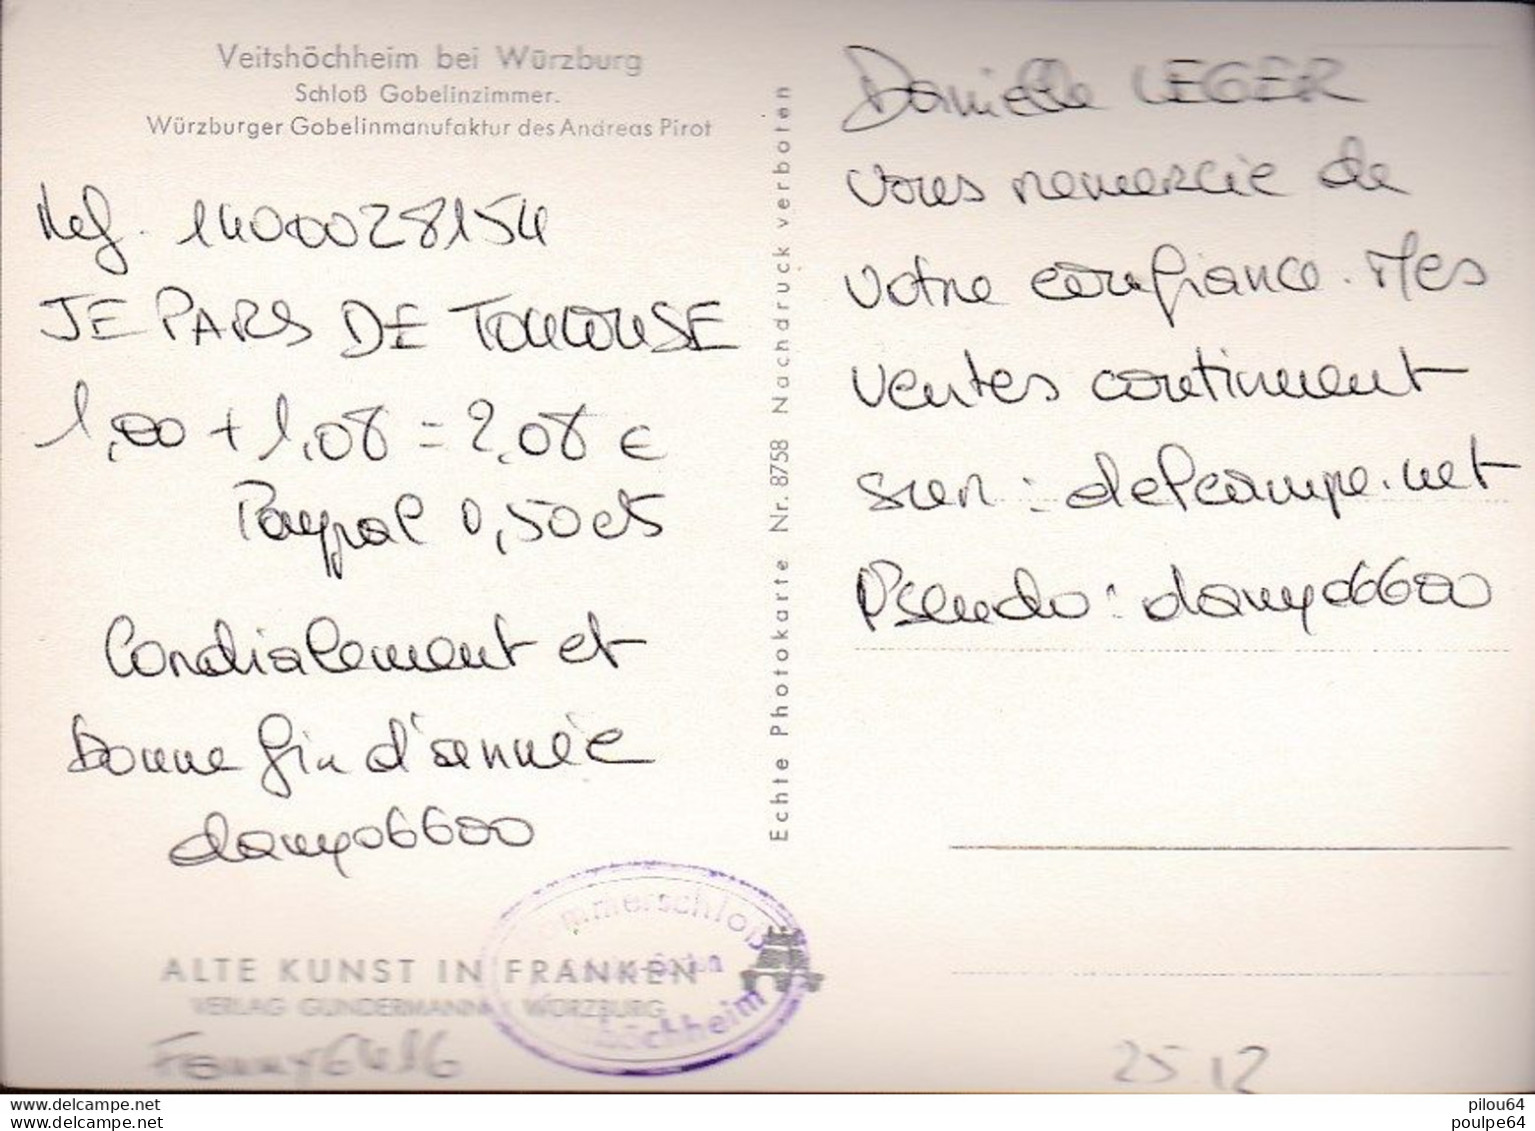 Veitshöchheim bei Würzburg
Schloß Gobelinzimmer.
Würzburger Gobelinmanufaktur des Andreas Pirot
Ref. 1400028154
JE PARS DE TOULOUSE
1,00 + 1,08 = 2,08 €
Paypal 0,50 cts
Cordialement et
Bonne fin d'année
damyo6600
ALTE KUNST IN FRANKEN
VERLAG GUNDERMANN WÜRZBURG
Echte Photokarte Nr. 8758 Nachdruck verboten
Danielle LEGER
vous remercie de
votre confiance. Mes
ventes continuent
sur : delcampe.net
Pseudo : damyo6600
mmerschloß
höchheim
25.12
pilou64
www.delcampe.net
www.delcampe.net
poulpe64